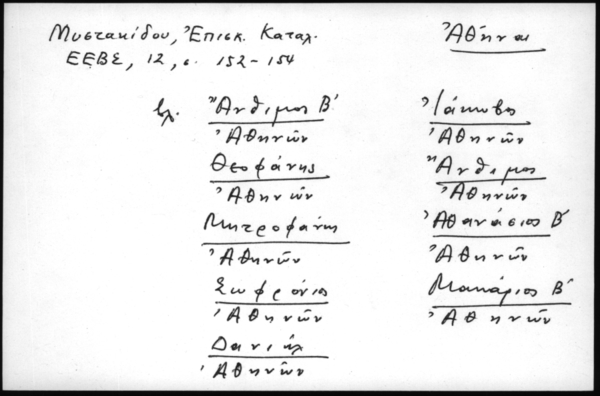 Μυστακίδου, Ἐπισκ. Καταλ.
ΕΕΒΣ, 12, σ. 152-154
Ἀθῆναι
βλ.
Ἄνθιμος Β΄
Ἀθηνῶν
Θεοφάνης
Ἀθηνῶν
Μητροφάνης
Ἀθηνῶν
Σωφρόνιος
Ἀθηνῶν
Δανιήλ
Ἀθηνῶν
Ἰάκωβος
Ἀθηνῶν
Ἄνθιμος
Ἀθηνῶν
Ἀθανάσιος Β΄
Ἀθηνῶν
Μακάριος Β΄
Ἀθηνῶν